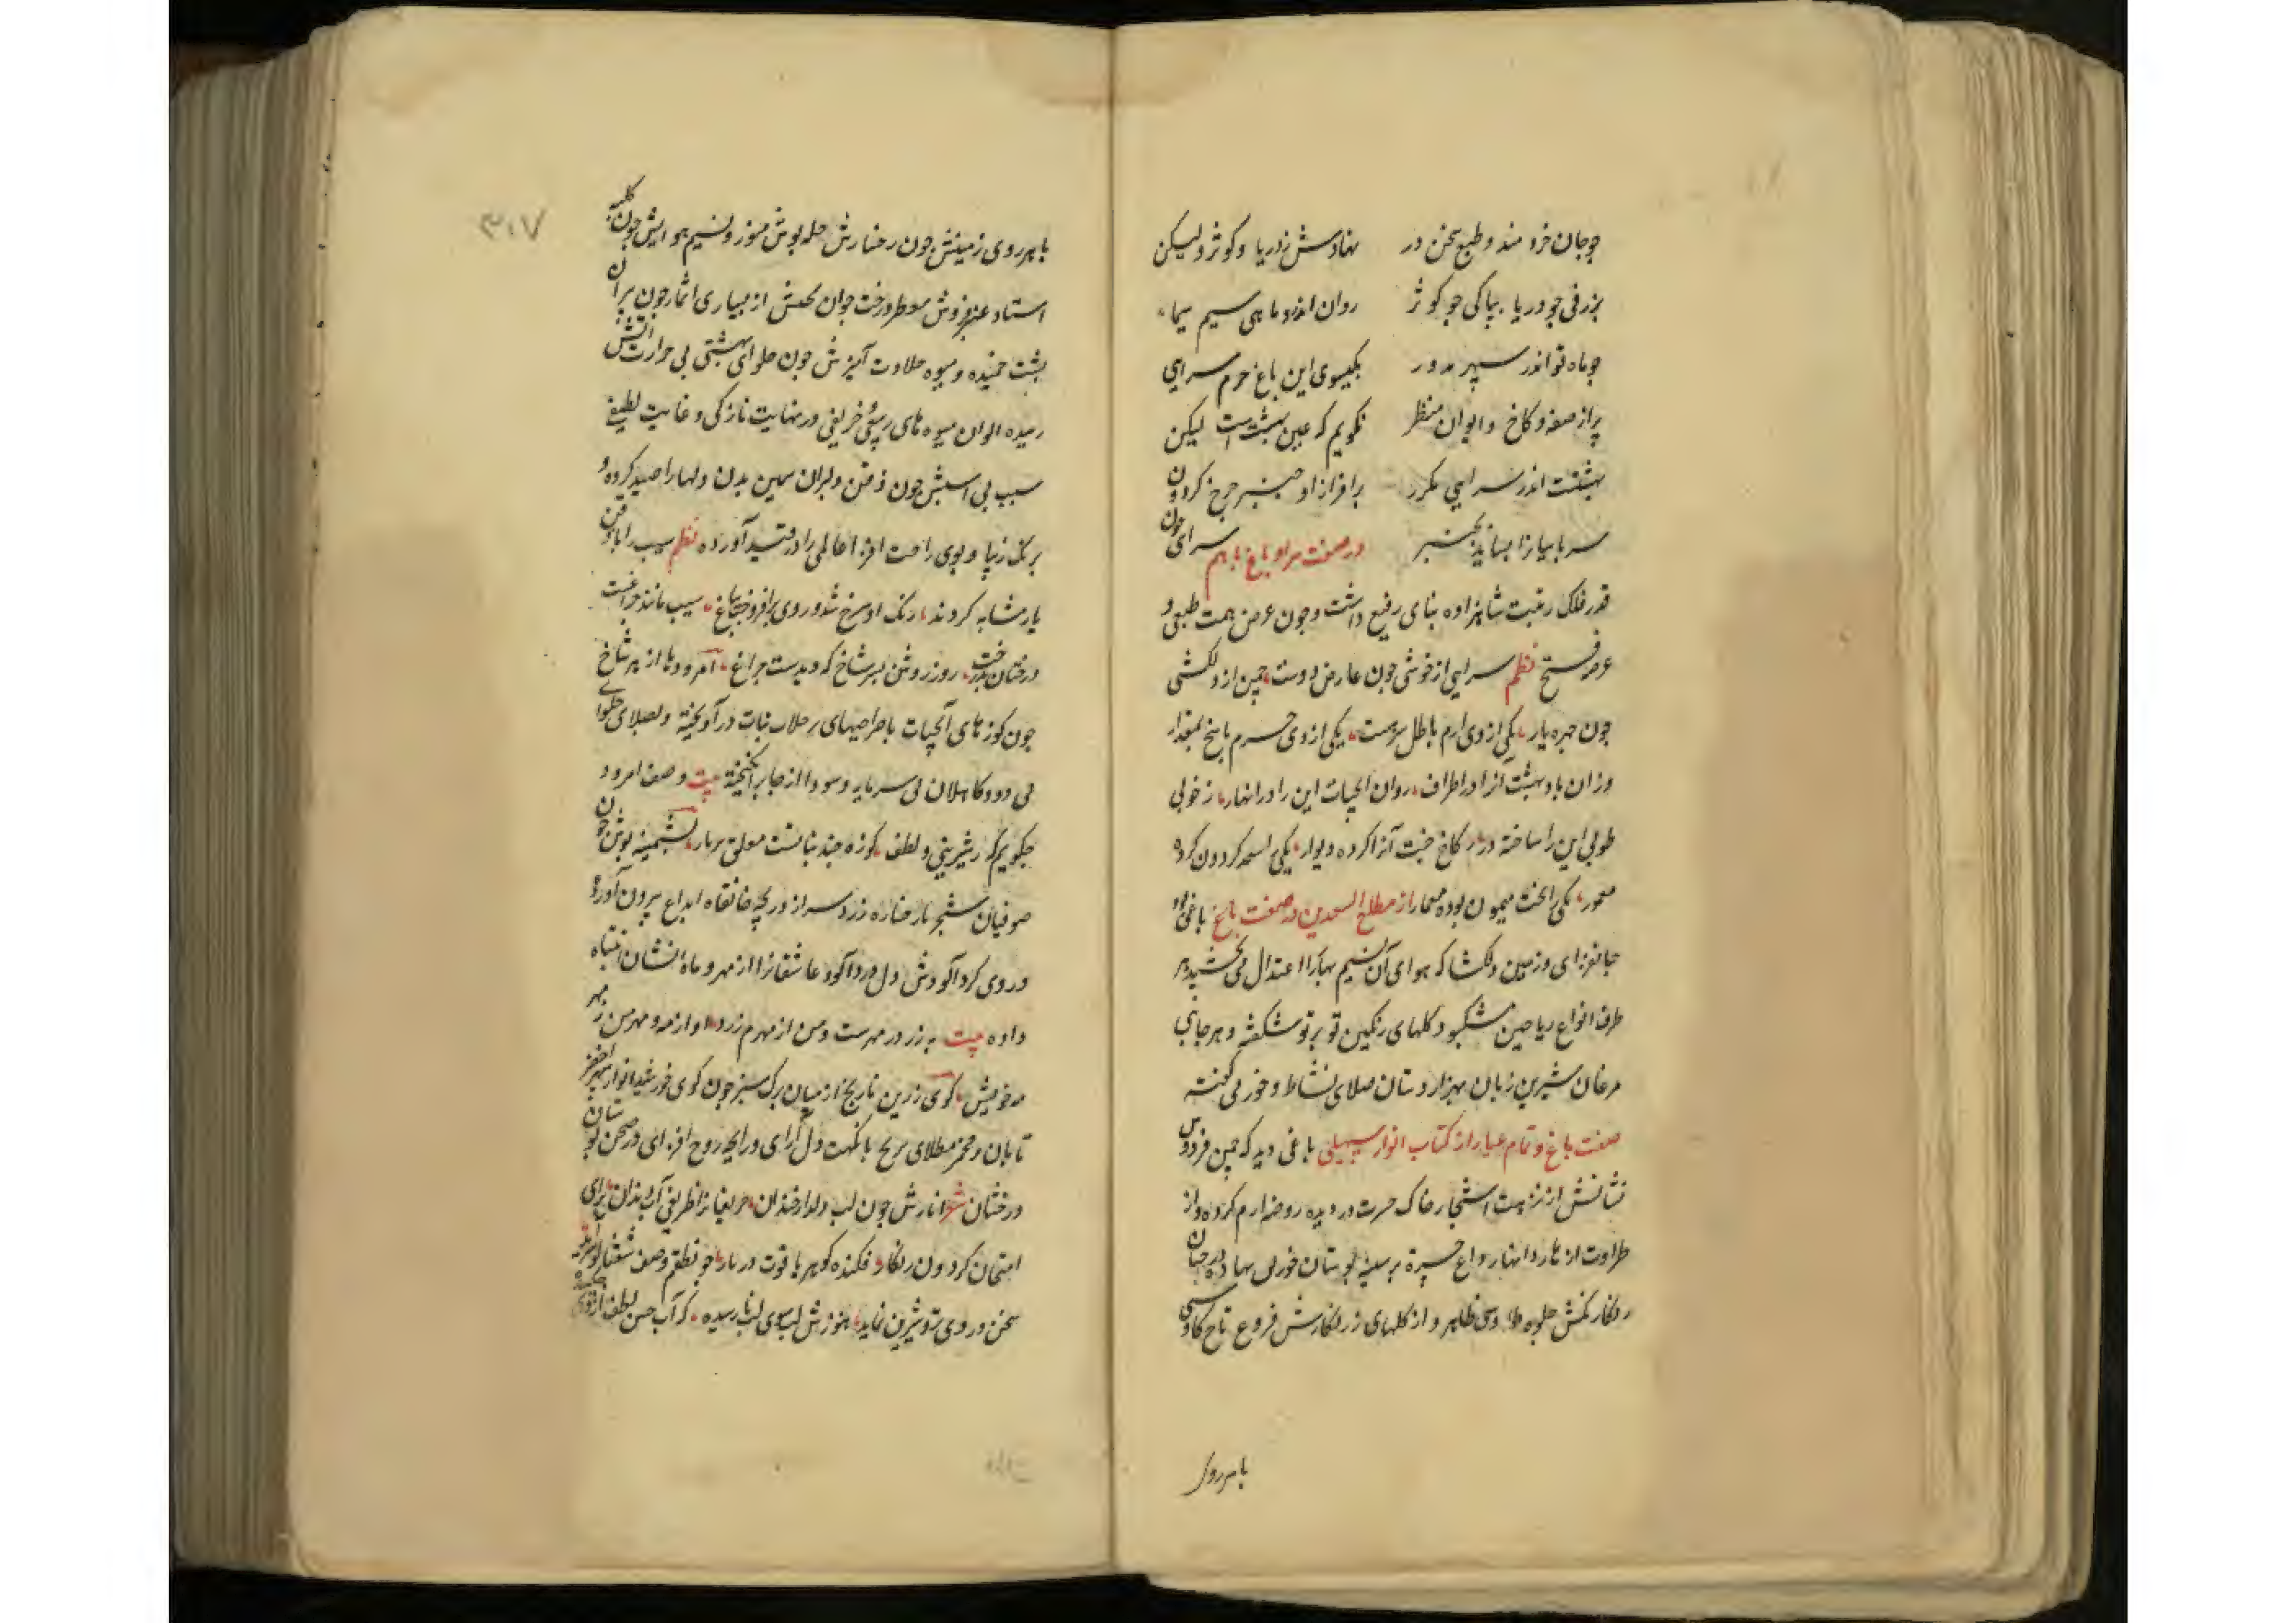 چو جان خردمند و طبع سخن در نهادش ز دریا و کوثر ولیکن
بژرفی چو دریا بپاکی چو کوثر روان اندرو ماهی سیم سیما
چو ماه نو اندر سپهر مدور بیکسوی این باغ خرم سرایی
پر از صفه و کاخ و ایوان و منظر نگویم که عین بهشتست لیکن
بهشتست اندر سرایی مکرر برافراز او چنبر چرخ گردون
سر پاسبانرا بساید بچنبر در صفت سرا و باغ باهم سرای چون
قدر فلک رتبت شاهزاده بنای رفیع داشت و چون عرض همت طبعی و
عرصه فسیح نظم سرایی از خوشی چون عارض دوست چمن از دلکشی
چون چهره یار یکی از وی ارم باطل یکی از وی حرم
وزان باد بهشت آنرا در اطراف روان آبحیات این را در انهار ز خوبی
طوبی این را ساخته در ز کاخ جنت آنرا کرده دیوار یکی گردون کرده
معمور یکی را بخت میمون بوده معمار از مطلع السعدین در صفت باغ باغی بود
جانفزای و زمین دلکشا که هوای آن نسیم بهار را اعتدال می بخشید هر
طرف انواع ریاحین مشکبو و گلهای رنگین تو بر تو شکفته و هر جای
مرغان شیرین زبان بهزار دستان صلای نشاط و خوری گفته
صفت باغ و تمام عیار از کتاب انوار سهیلی باغی دید که چمن فردوس
نشانش از نزهت اشجار خاک حسرت در دیده روضه ارم کرده و از
طراوت ازهار و انهار داغ حیرت بر سینه بوستان خورنق نهاده درختان
رنگارنگش جلوه طاوسی ظاهر و از گلهای زرنگارش فروغ تاج کاوسی
باهر روی
۳۰۷
باهر روی زمینش چون رخسارش حله پوش منور و نسیم هوایش چون کلبه
استاد عنبرفروش معطر درخت جوان بختش از بسیاری اثمار چون پیران
پشت خمیده و میوه حلاوت آمیزش چون حلوای بهشتی بی حرارت آتش
رسیده الوان میوه های ربیعی و خریفی در نهایت نازکی و غایت لطیفی
سیب بی آسیبش چون ذقن دلبران سیمین بدن دلها را صید کرده و
برنگ زیبا و بوی راحت افزا عالمی را در قید آورده نظم سیب را با ذقن
یار مشابه کردند رنگ او سرخ شد و روی برافروخت بباغ سیب مانند چراغیست
درختان بدرخت روز روشن بسر شاخ که دیدست چراغ امرودها از هر شاخ
چون کوزهای آبحیات با صراحیهای جلاب نبات درآویخته و بصلای حلوای
بی دود کاهلان بی سرمایه و سود را از جا برانگیخته بیت وصف امرود
چگویم که ز شیرینی و لطف کوزه چند نباتست معلق بر بار پشمینه پوش چون
صوفیان شجر با رخساره زرد سر از دریچه خانقاه ابداع بیرون آورده
و روی گردآلودش دل دردآلود عاشقانرا از مهر و ماه نشان انتباه
داده بیت به زرد ز مهرست و من از مهرم زرد او از مه و مهر من ز مهر
مه خویش گوی زرین نارنج از میان برگ سبز چون گوی خورشید انوار سپهر اخضر
تابان و مجمر مطلای ترنج با نکهت دل آرای و رایحه روح افزای در صحن بوستان
درخشان شعر انارش چون لب دلدار خندان حریفانرا ظریفی آب دندان برای
امتحان گردون رنکار فکنده گوهر یاقوت در نار چو نطقم وصف شفتالو
سخن در وی تر و شیرین نماید هنوزش لب سوی لب نارسیده که آب حسن لطف از وی